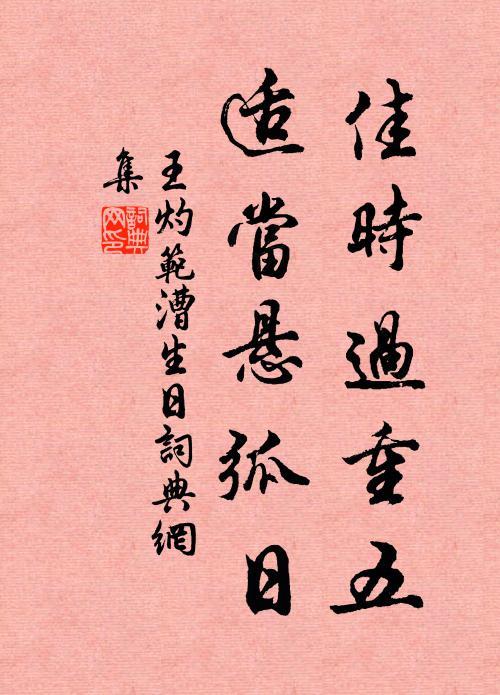 佳時過重五
适當悬弧日
王灼範漕生日詞典網
集
詞典網印